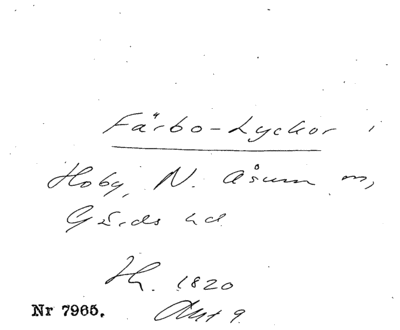 Färbo-Lyckor i
Hoby, N. Åsum m,
Gärds hd
Th. 1820
Nr 7965. Akt 9.